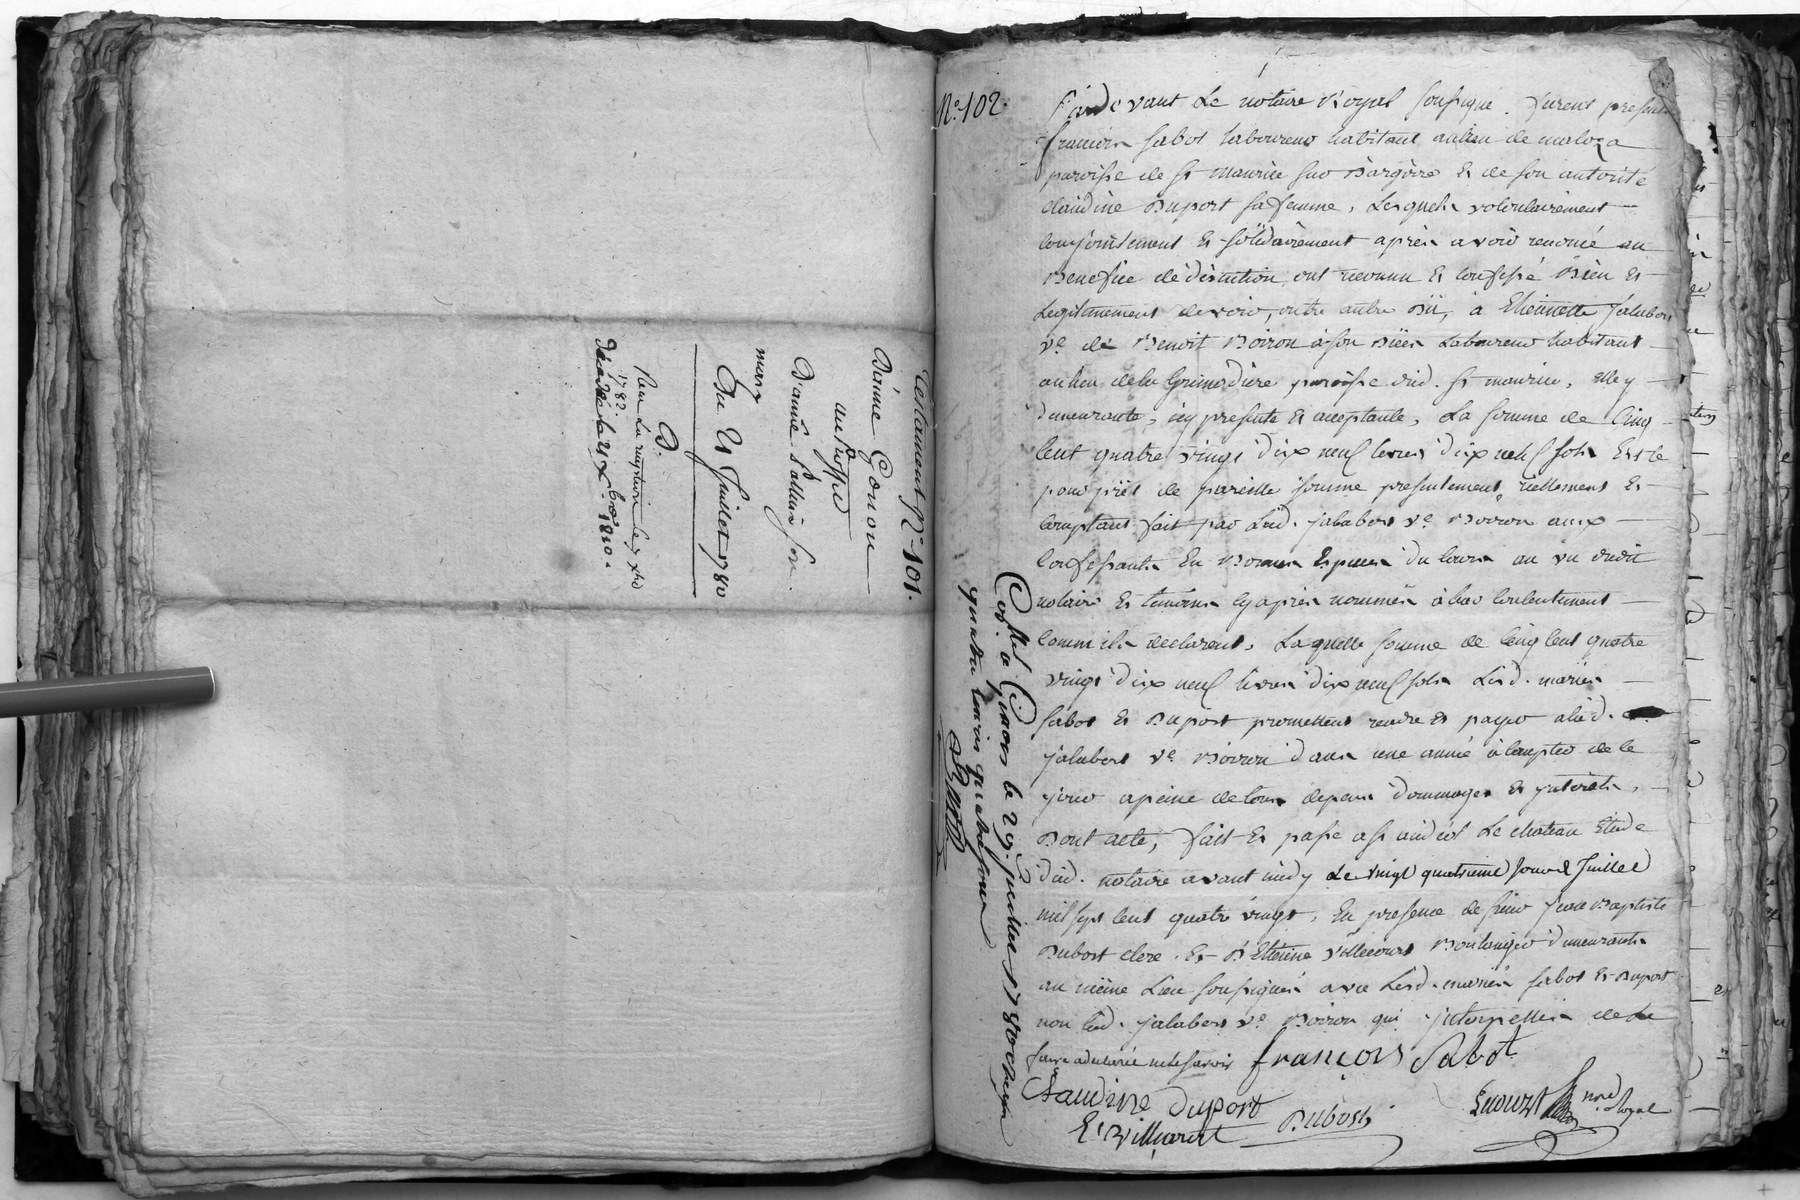 Testament N.° 101.
Dame Gonon
au proffit
Dame Pallais son
mary
Du 21 Juillet 1780
D.
1782.
décédé le 21 X.bre 1810.
N.° 102.
Pardevant Le notaire Royal soussigné. furent presents
francois sabot Laboureur habitant au lieu de maloza
paroisse de st Maurice sur Dargoire Et de son autorité
claudine Duport sa femme, Lesquels volontairement
conjointement Et solidairement après avoir renoncé au
Benefice de discution, ont reconnu Et confessé Bien Et
Legitimement devoir, outre autre Dû, à Etiennette Jalabert
v.e de Benoit Boiron à son vivant Laboureur habitant
au lieu de la Grimodière paroisse dud. st maurice, elle y
demeurante, icy presente Et acceptante, La somme de Cinq
Cent quatre vingt dix neuf livres dix neuf sols Et ce
pour prêt de pareille somme presentement, réellement Et
Comptant fait par Lad. jalabert v.e Boiron aux
Confessants En Bonnes Especes du cours au vu dudit
notaire Et temoins cy après nommés à leur Contentement
Comm ils declarent, Laquelle somme de Cinq Cent quatre
vingt dix neuf livres dix neuf sols Lesd. mariés
sabot Et Duport promettent rendre Et payer à lad.
jalabert v.e Boiron dans une année à Compter de ce
jour apeine de tous depens dommages Et interets,
Dont acte, fait Et passé à st andéol Le chateau Etude
dud. notaire avant midy Le vingt quatrieme jour de Juillet
mil sept Cent quatre vingt, En presence de sieur Jean Baptiste
Dubost clerc. Et D'Etienne Villecourt Boulanger demeurants
au même Lieu soussignés avec Lesd. mariés sabot Et Duport
non Lad. jalabert v.e Boiron qui interpellée de le
faire a declaré ne le savoir françois Sabot
Claudine duport
E.t Villecourt Dubost
nore Royal
Con.llé à Givors le 29. juillet 1780 Reçu
quatre livres quatre sous